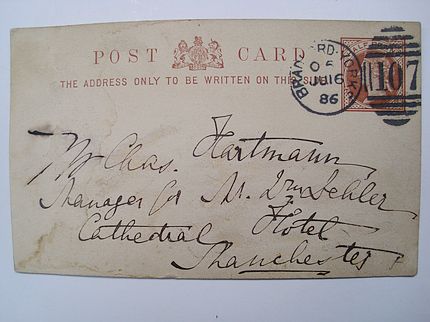 POST CARD
THE ADDRESS ONLY TO BE WRITTEN ON THIS SIDE
BRADFORD YORKS
JU 16
86
107
Mr Chas. Hartmann
Manager for Mr.
Cathedral Hotel
Manchester